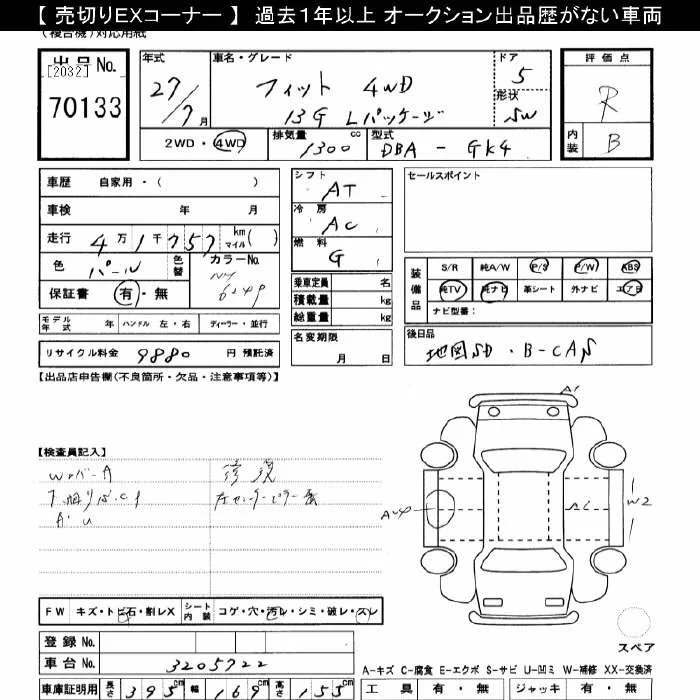 【 売切りEXコーナー 】 過去1年以上 オークション出品歴がない車両
(複合機)対応用紙
出品No.
[2032]
70133
年式
27/7月
車名・グレード
フィット 4WD
13G Lパッケージ
ドア
5
形状
SW
評価点
R
内装 B
2WD・4WD
排気量
1300 cc
型式
DBA - GK4
車歴 自家用・( )
車検 年 月
走行 4万1千757 km マイル( )
色 パール
色替
カラーNo.
保証書 有・無
シフト
AT
冷房
AC
燃料
G
乗車定員 名
積載量 kg
総重量 kg
名変期限
月 日
セールスポイント
装備品
S/R 純A/W P/S P/W ABS
純TV 純ナビ 革シート 外ナビ エアB
ナビ型番:
後日品
地図SD・B-CAS
モデル年式 年 ハンドル 左・右 ディーラー・並行
リサイクル料金 9880 円 預託済
【出品店申告欄(不良箇所・欠品・注意事項等)】
【検査員記入】
修復
A・U
左センターピラー
A1
W2
FW キズ・トビ石・割レX シート内装 コゲ・穴・汚レ・シミ・破レ・スレ
登録 No.
車台 No. 3205722
車庫証明用 長さ 395cm 幅 169cm 高さ 155cm
スペア
A-キズ C-腐食 E-エクボ S-サビ U-凹ミ W-補修 XX-交換済
工具 有・無 ジャッキ 有・無